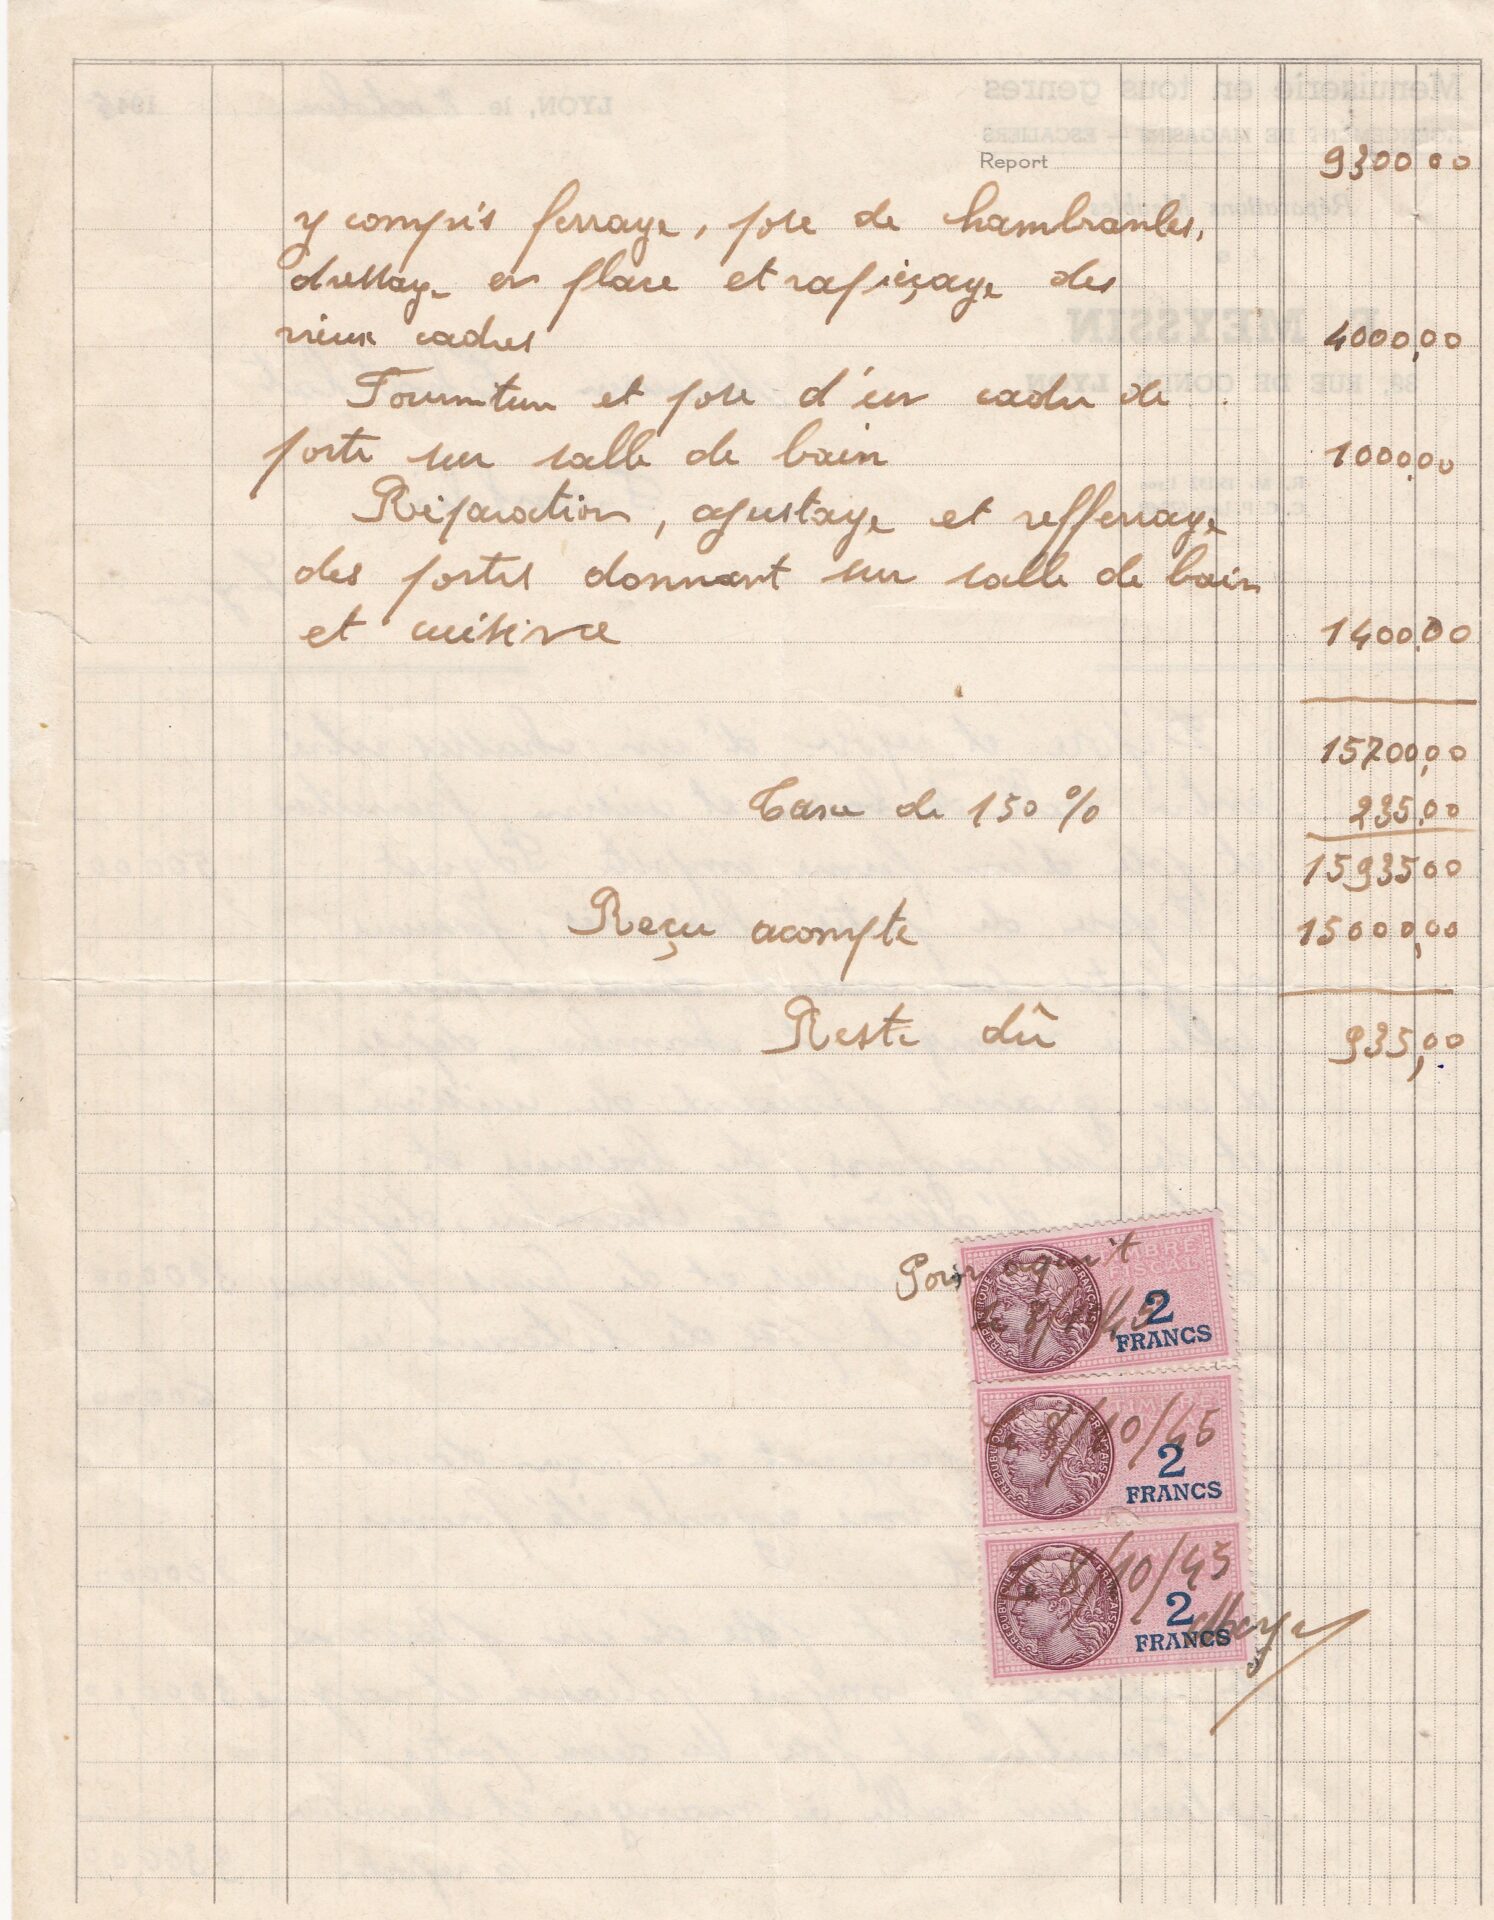 Report 9300,00
y compris ferrage, pose de chambranles,
dressage en place et rapieçage des
vieux cadres 4000,00
Fourniture et pose d'un cadre de
porte sur salle de bain 1000,00
Réparation, ajustage et refferrage
des portes donnant sur salle de bain
et cuisine 1400,00
15700,00
Taxe de 1 50 % 235,00
15935,00
Reçu acompte 15000,00
Reste dû 935,00
Pour aquit
TIMBRE
FISCAL
RÉPUBLIQUE FRANÇAISE
2
FRANCS
le 8/10/45
RÉPUBLIQUE FRANÇAISE
2
FRANCS
le 8/10/45
RÉPUBLIQUE FRANÇAISE
2
FRANCS